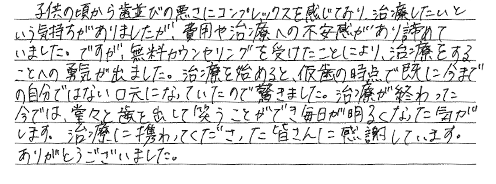 子供の頃から歯並びの悪さにコンプレックスを感じており、治療したいと
いう気持ちがありましたが、費用や治療への不安感があり諦めて
いました。ですが、無料カウンセリングを受けたことにより、治療をする
ことへの勇気が出ました。治療を始めると、仮歯の時点で既に今まで
の自分ではない口元になっていたので驚きました。治療が終わった
今では、堂々と歯を出して笑うことができ毎日が明るくなった気が
します。治療に携わってくださった皆さんに感謝しています。
ありがとうございました。